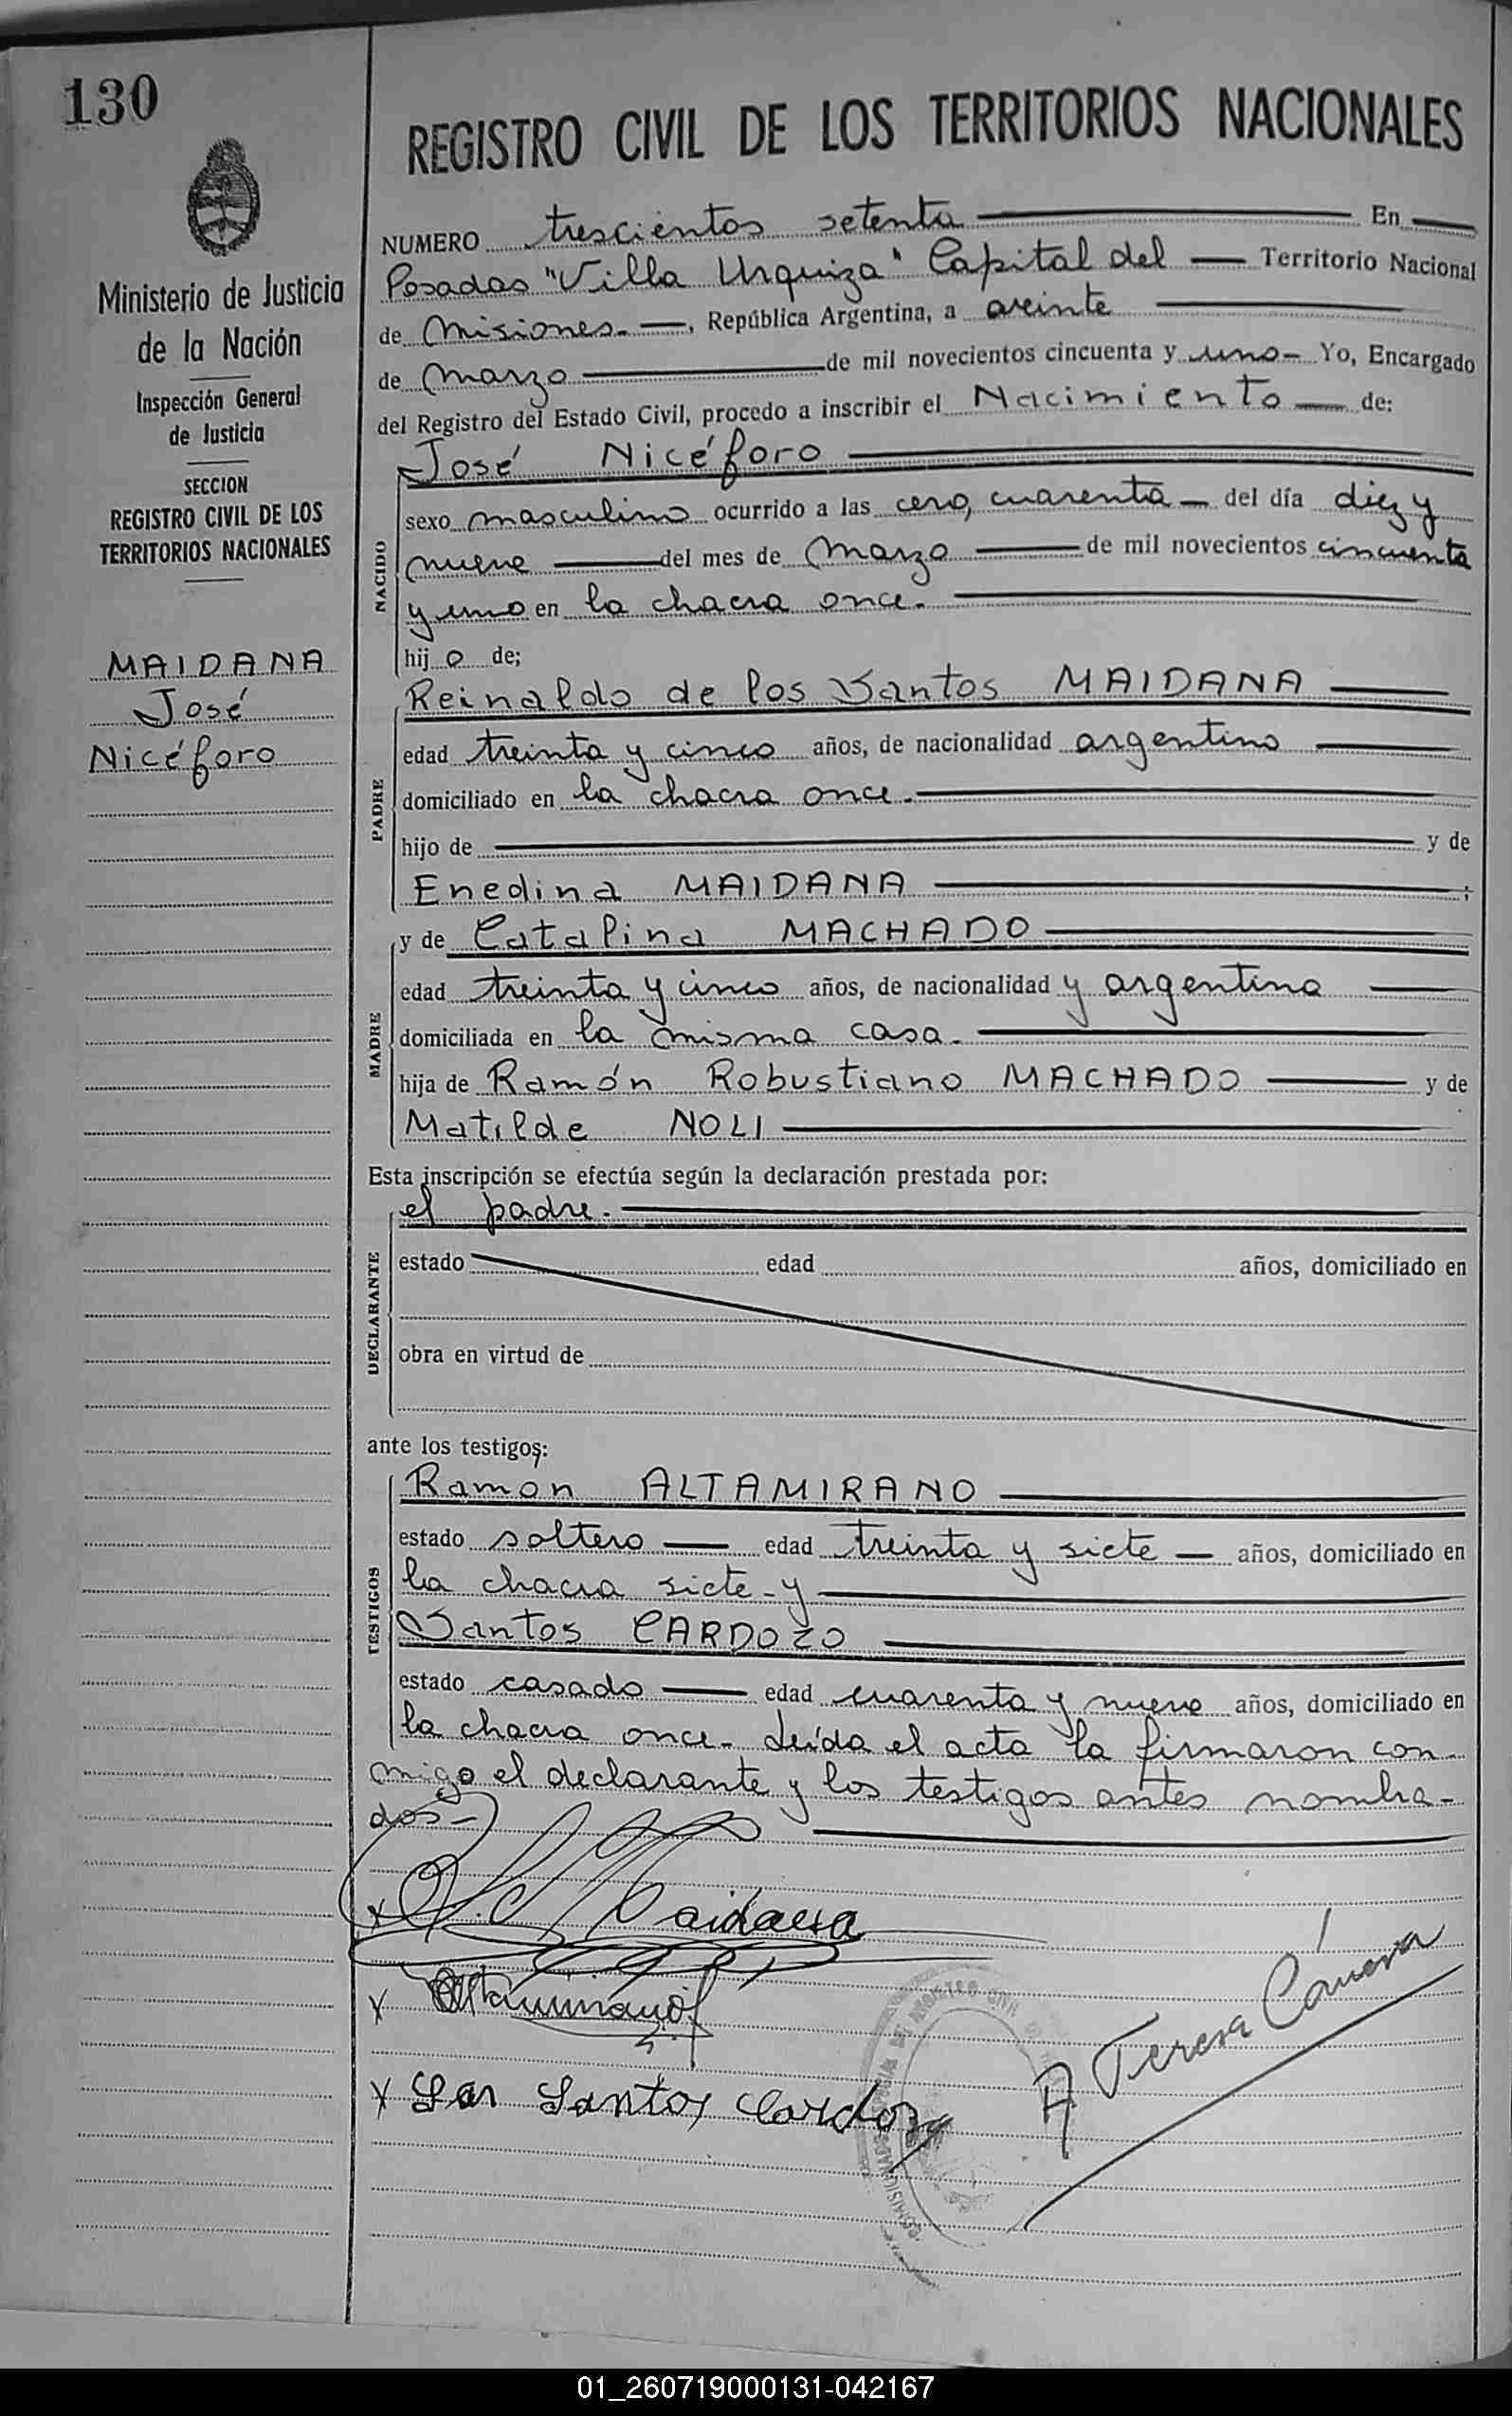 130
REGISTRO CIVIL DE LOS TERRITORIOS NACIONALES
Ministerio de Justicia
de la Nación
Inspección General
de Justicia
SECCION
REGISTRO CIVIL DE LOS
TERRITORIOS NACIONALES
MAIDANA
José
Nicéforo
NUMERO trescientos setenta En
Posadas "Villa Urquiza" Capital del Territorio Nacional
de Misiones. , República Argentina, a veinte
de Marzo de mil novecientos cincuenta y uno Yo, Encargado
del Registro del Estado Civil, procedo a inscribir el Nacimiento de:
NACIDO
José Nicéforo
sexo masculino ocurrido a las cero, cuarenta del día diez y
nueve del mes de Marzo de mil novecientos cincuenta
y uno en la chacra once.
hijo de;
PADRE
Reinaldo de los Santos MAIDANA
edad treinta y cinco años, de nacionalidad argentino
domiciliado en la chacra once.
hijo de y de
Enedina MAIDANA ;
MADRE
y de Catalina MACHADO
edad treinta y cinco años, de nacionalidad y argentina
domiciliada en la misma casa.
hija de Ramón Robustiano MACHADO y de
Matilde NOLI
Esta inscripción se efectúa según la declaración prestada por:
DECLARANTE
el padre.
estado edad años, domiciliado en
obra en virtud de
ante los testigos:
TESTIGOS
Ramon ALTAMIRANO
estado soltero edad treinta y siete años, domiciliado en
la chacra siete - y
Santos CARDOZO
estado casado edad cuarenta y nueve años, domiciliado en
la chacra once. Leída el acta la firmaron con-
migo el declarante y los testigos antes nombra-
dos-
x Maidana
x Altamirano
x Santos Cardozo
A Teresa
01_260719000131-042167